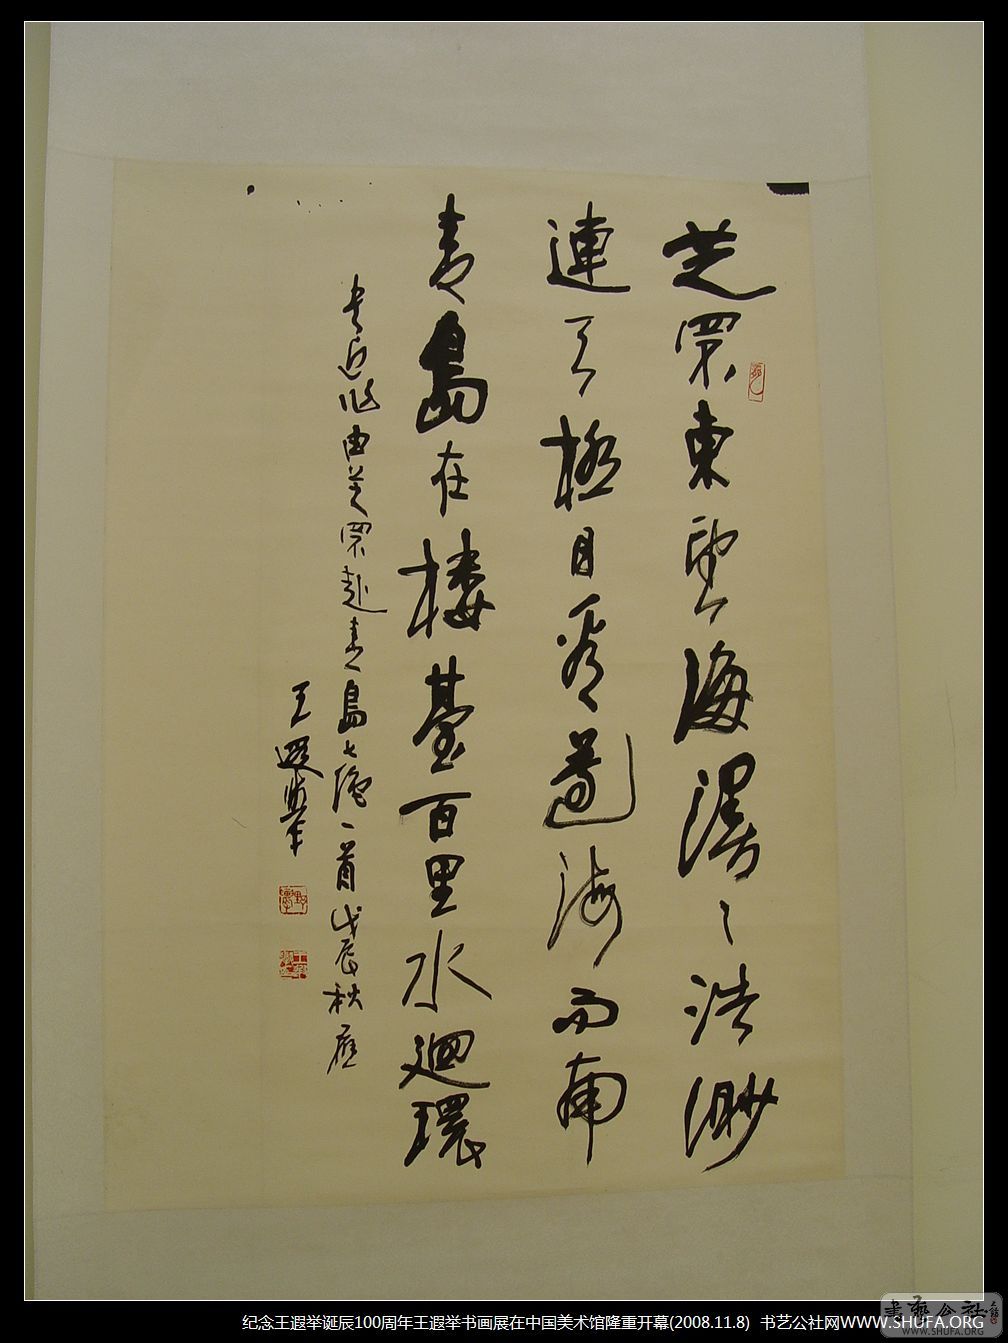 芝罘東望海漫〻浩渺
連天極目看遵海而南
青島在樓臺百里水迴環
书近作由芝罘赴青島七绝一首戊辰秋
王遐舉
书艺公社
WWW.SHUFA.ORG
纪念王遐举诞辰100周年王遐举书画展在中国美术馆隆重开幕(2008.11.8) 书艺公社网WWW.SHUFA.ORG